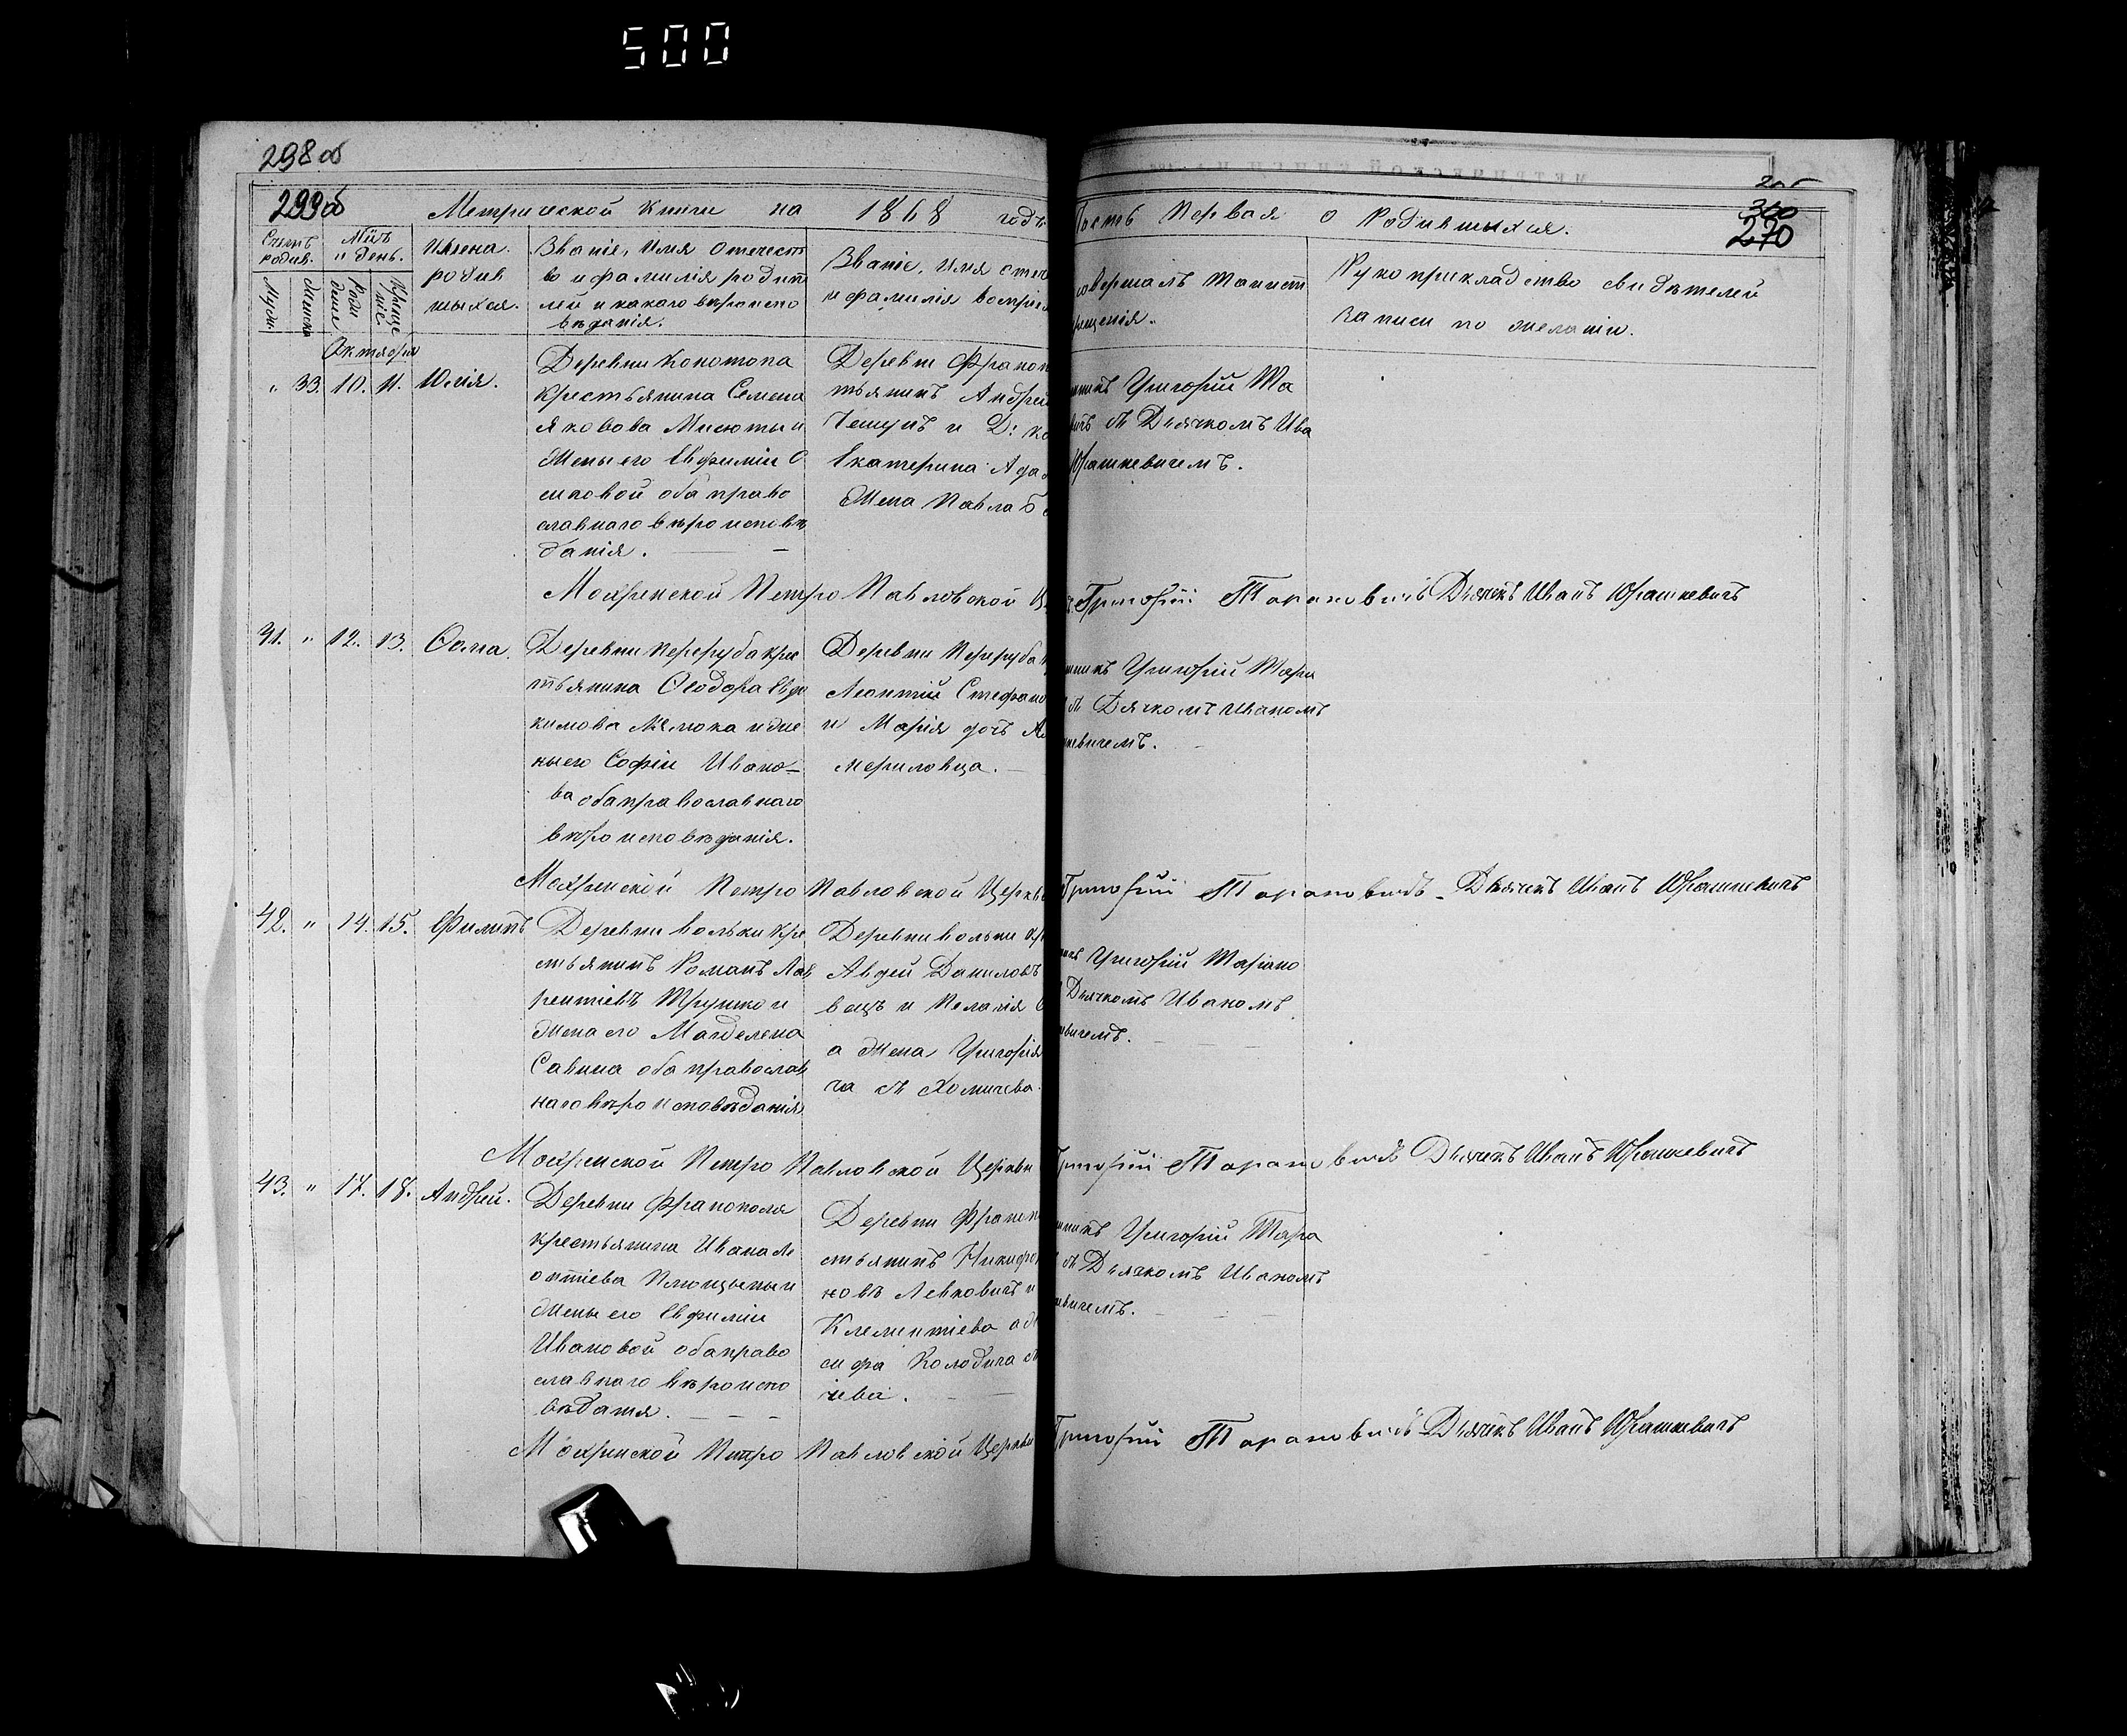 500
298об
299об
Метрической Книги на 1868 годъ
Часть Первая о Родившихся.
300
270
Счетъ родив.
Мужск.
Женска
Мѣц. и день.
Рождение
Крещеніе.
Имена. родившихся.
Званіе, Имя Отечест
во и фамилія родит
лей и какого вѣроиспо
вѣданія.
Званіе, Имя отече
и фамилія воспріе
совершалъ Таинст
крещенія.
Рукоприкладство свидѣтелей
записи по желанію.
Октября
" 33. 10. 11. Юлія.
Деревни Конотопа
Крестьянина Семена
Яковова Мисюты и
Жены его Евфиміи О
сиповой оба право
славнаго вѣроисповѣ
данія.
Деревни Франоп
тьянинъ Андрей
и Д: Ко
Екатерина Ада
Жена Павла Б
никъ Григорій Та
вичъ съ Дьячкомъ Ива
Юрашкевичемъ.
Мохринской Петро Павловской Ц
Григорій Тарановичъ Дьячекъ Иванъ Юрашкевичъ
31. " 12. 13. Ѳома.
Деревни Переруба крес
тьянина Ѳеодора Евдо
кимова и же
ны его Софіи Ивано-
ва оба православнаго
вѣроисповѣданія.
Деревни Переруба
Леонтій Стефано
и Марія дочь
мериловца.
никъ Григорій Тара
съ Дьячкомъ Иваномъ
кевичемъ.
Мохринской Петро Павловской Церкви
Григорій Тарановичъ - Дьячекъ Иванъ Юрашкевичъ
42. " 14. 15. Филипъ
Деревни Вольки кре
стьянинъ Романъ Лав
рентіевъ Трушко и
Жена его Магделена
Савина оба православ
наго вѣроисповѣданія.
Деревни Вольки кр
Авдей Даниловъ
вецъ и Пелагія
а Жена Григорія
ча съ Хомичева.
никъ Григорій Тарано
Дьячкомъ Иваномъ
вичемъ.
Мохринской Петро Павловской Церкви
Григорій Тарановичъ Дьячекъ Иванъ Юрашкевичъ
43. " 17. 18. Андрей.
Деревни Франополя
крестьянина Ивана Ле
онтіева и
Жены его Евфиміи
Ивановой оба право
славнаго вѣроиспо
вѣданія.
Деревни Франоп
стьянинъ Никифо
новъ Левковичъ и
Клементіева а ж
сифа Колодича съ
чева.
никъ Григорій Тара
съ Дьячкомъ Иваномъ
вичемъ.
Мохринской Петро Павловской Церкви
Григорій Тарановичъ Дьячекъ Иванъ Юрашкевичъ